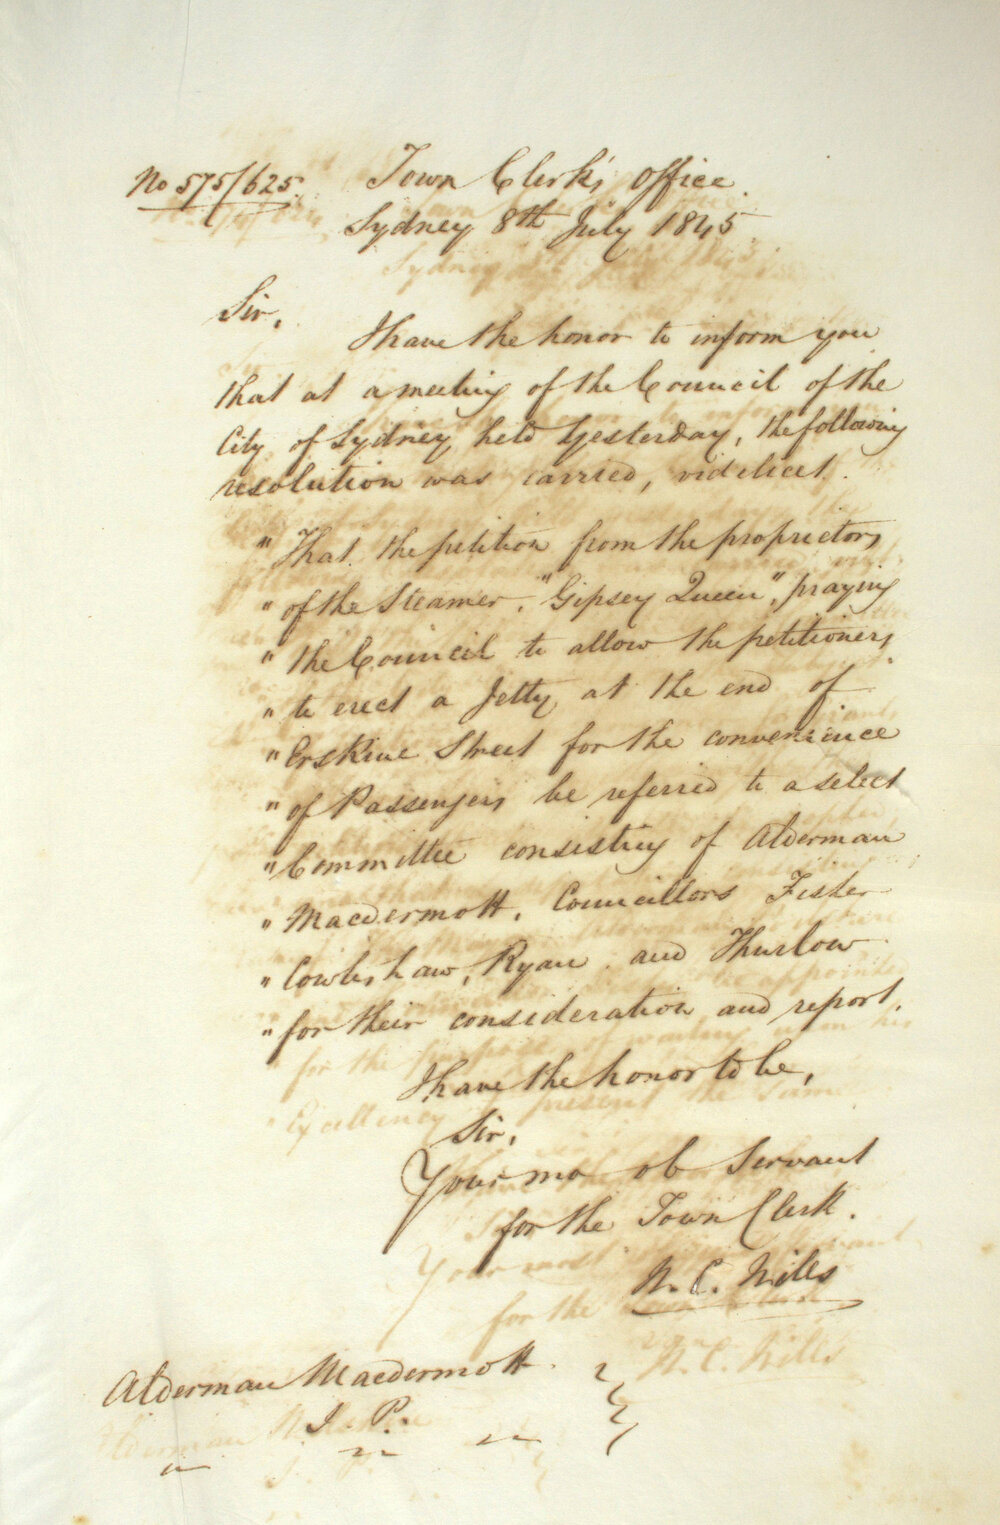 No 575/625. Town Clerk's Office.
Sydney 8th July 1845.
Sir,
I have the honor to inform you
that at a meeting of the Council of the
City of Sydney held Yesterday, the following
resolution was carried, videlicet.
" That the petition from the proprietors
" of the Steamer, "Gipsey Queen", praying
" the Council to allow the petitioners
" to erect a Jetty at the end of
" Erskine Street for the convenience
" of Passengers be referred to a select
" Committee consisting of Alderman
" Macdermott, Councillors Fisher
" Cowlishaw, Ryan and Thurlow
" for their consideration and report.
I have the honor to be,
Sir,
Your mo ob Servant
for the Town Clerk.
W. C. Wills
Alderman Macdermott
J. P.